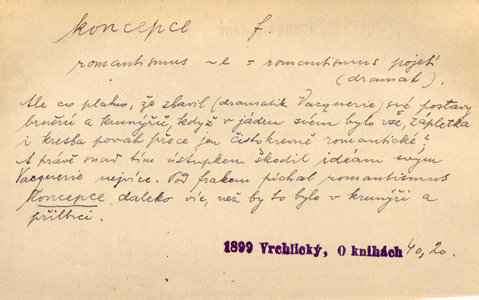 koncepce f.
romantismus ~e = romantismus pojetí
(dramat).
Ale co platno, že zbavil (dramatik Vacquerie) své postavy
brnění a krunýřů, když v jádru svém bylo vše, zápletka
i kresba povah přece jen čistokrevně romantické;
A právě snad tím ústupkem škodil ideam svým
Vacquerie nejvíce. Pod frakem píchal romantismus
koncepce daleko víc, než by to bylo v krunýři a
přílbici.
1899 Vrchlický, O knihách 40, 20.